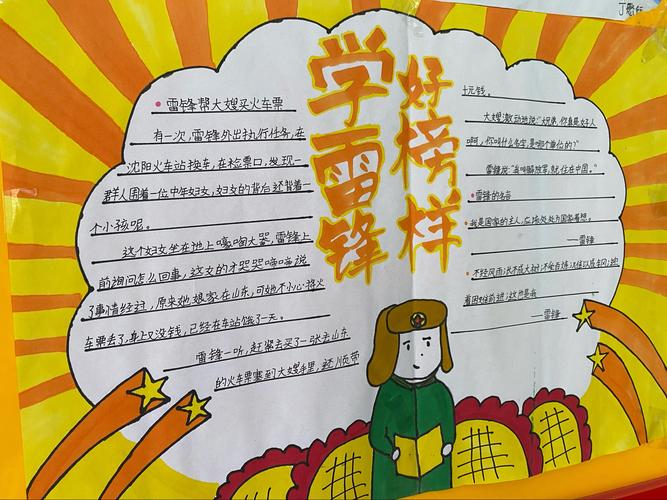 学雷锋
好榜样
雷锋帮大嫂买火车票
有一次,雷锋外出执行任务,在
沈阳火车站换车,在检票口,发现一
群人围着一位中年妇女,妇女的背后还背着一
个小孩呢。
这个妇女坐在地上嚎啕大哭,雷锋上
前询问怎么回事,这妇才哭哭啼啼说
了事情经过,原来她娘家在山东,可她不小心将火
车票丢了,身上又没钱,已经在车站饿了一天。
雷锋一听,赶紧去买了一张去山东
的火车票塞到大嫂手里,还顺带
十元钱。
大嫂激动地说:“兄弟,你真是好人
啊,你叫什么名字,是哪个单位的?”
雷锋说:“我叫解放军,就住在中国。”
雷锋的名言
我是国家的主人,应该处处为国家着想。
——雷锋
不经风雨,长不成大树;不受百炼,难以成钢;迎
着困难前进,这也是我
——雷锋